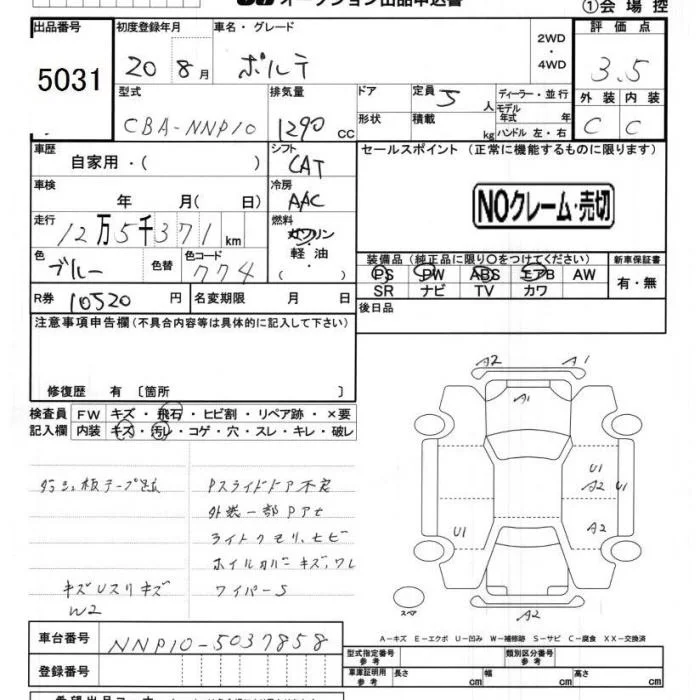 オークション出品申込書 ①会場控
出品番号 初度登録年月 車名・グレード 2WD・4WD 評価点
5031 20 8月 ポルテ 3.5
型式 排気量 ドア 定員 5人 ディーラー・並行 外装 内装
CBA-NNP10 1290cc 形状 積載 kg モデル年式 年 ハンドル 左・右 C C
車歴 シフト セールスポイント（正常に機能するものに限ります）
自家用・( ) CAT
車検 冷房
年 月( 日) AAC NOクレーム・売切
走行 燃料
12万5千371km ガソリン
軽油
( )
色 色替 色コード 装備品（純正品に限り〇をつけてください） 新車保証書
ブルー 774 PS PW ABS エアB AW 有・無
SR ナビ TV カワ
R券 10520円 名変期限 月 日 後日品
注意事項申告欄（不具合内容等は具体的に記入して下さい）
修復歴 有〔箇所 〕
検査員 FW キズ・飛石・ヒビ割・リペア跡・×要
記入欄 内装 キズ・汚レ・コゲ・穴・スレ・キレ・破レ
A2 A1
A1
ダッシュ板テープ跡 Pスライドドア不良
外装一部Pアセ
ライトクモリ、ヒビ
ホイルカバーキズ、ワレ
キズUスリキズ ワイパーS
W2
U1
A2 U1
A2
U1
スペア
A2
A-キズ E-エクボ U-凹み W-補修跡 S-サビ C-腐食 XX-交換済
車台番号 NNP10-5037858
型式指定番号 参考 類別区分番号 参考
登録番号 車庫証明用 参考 長さ cm 幅 cm 高さ cm